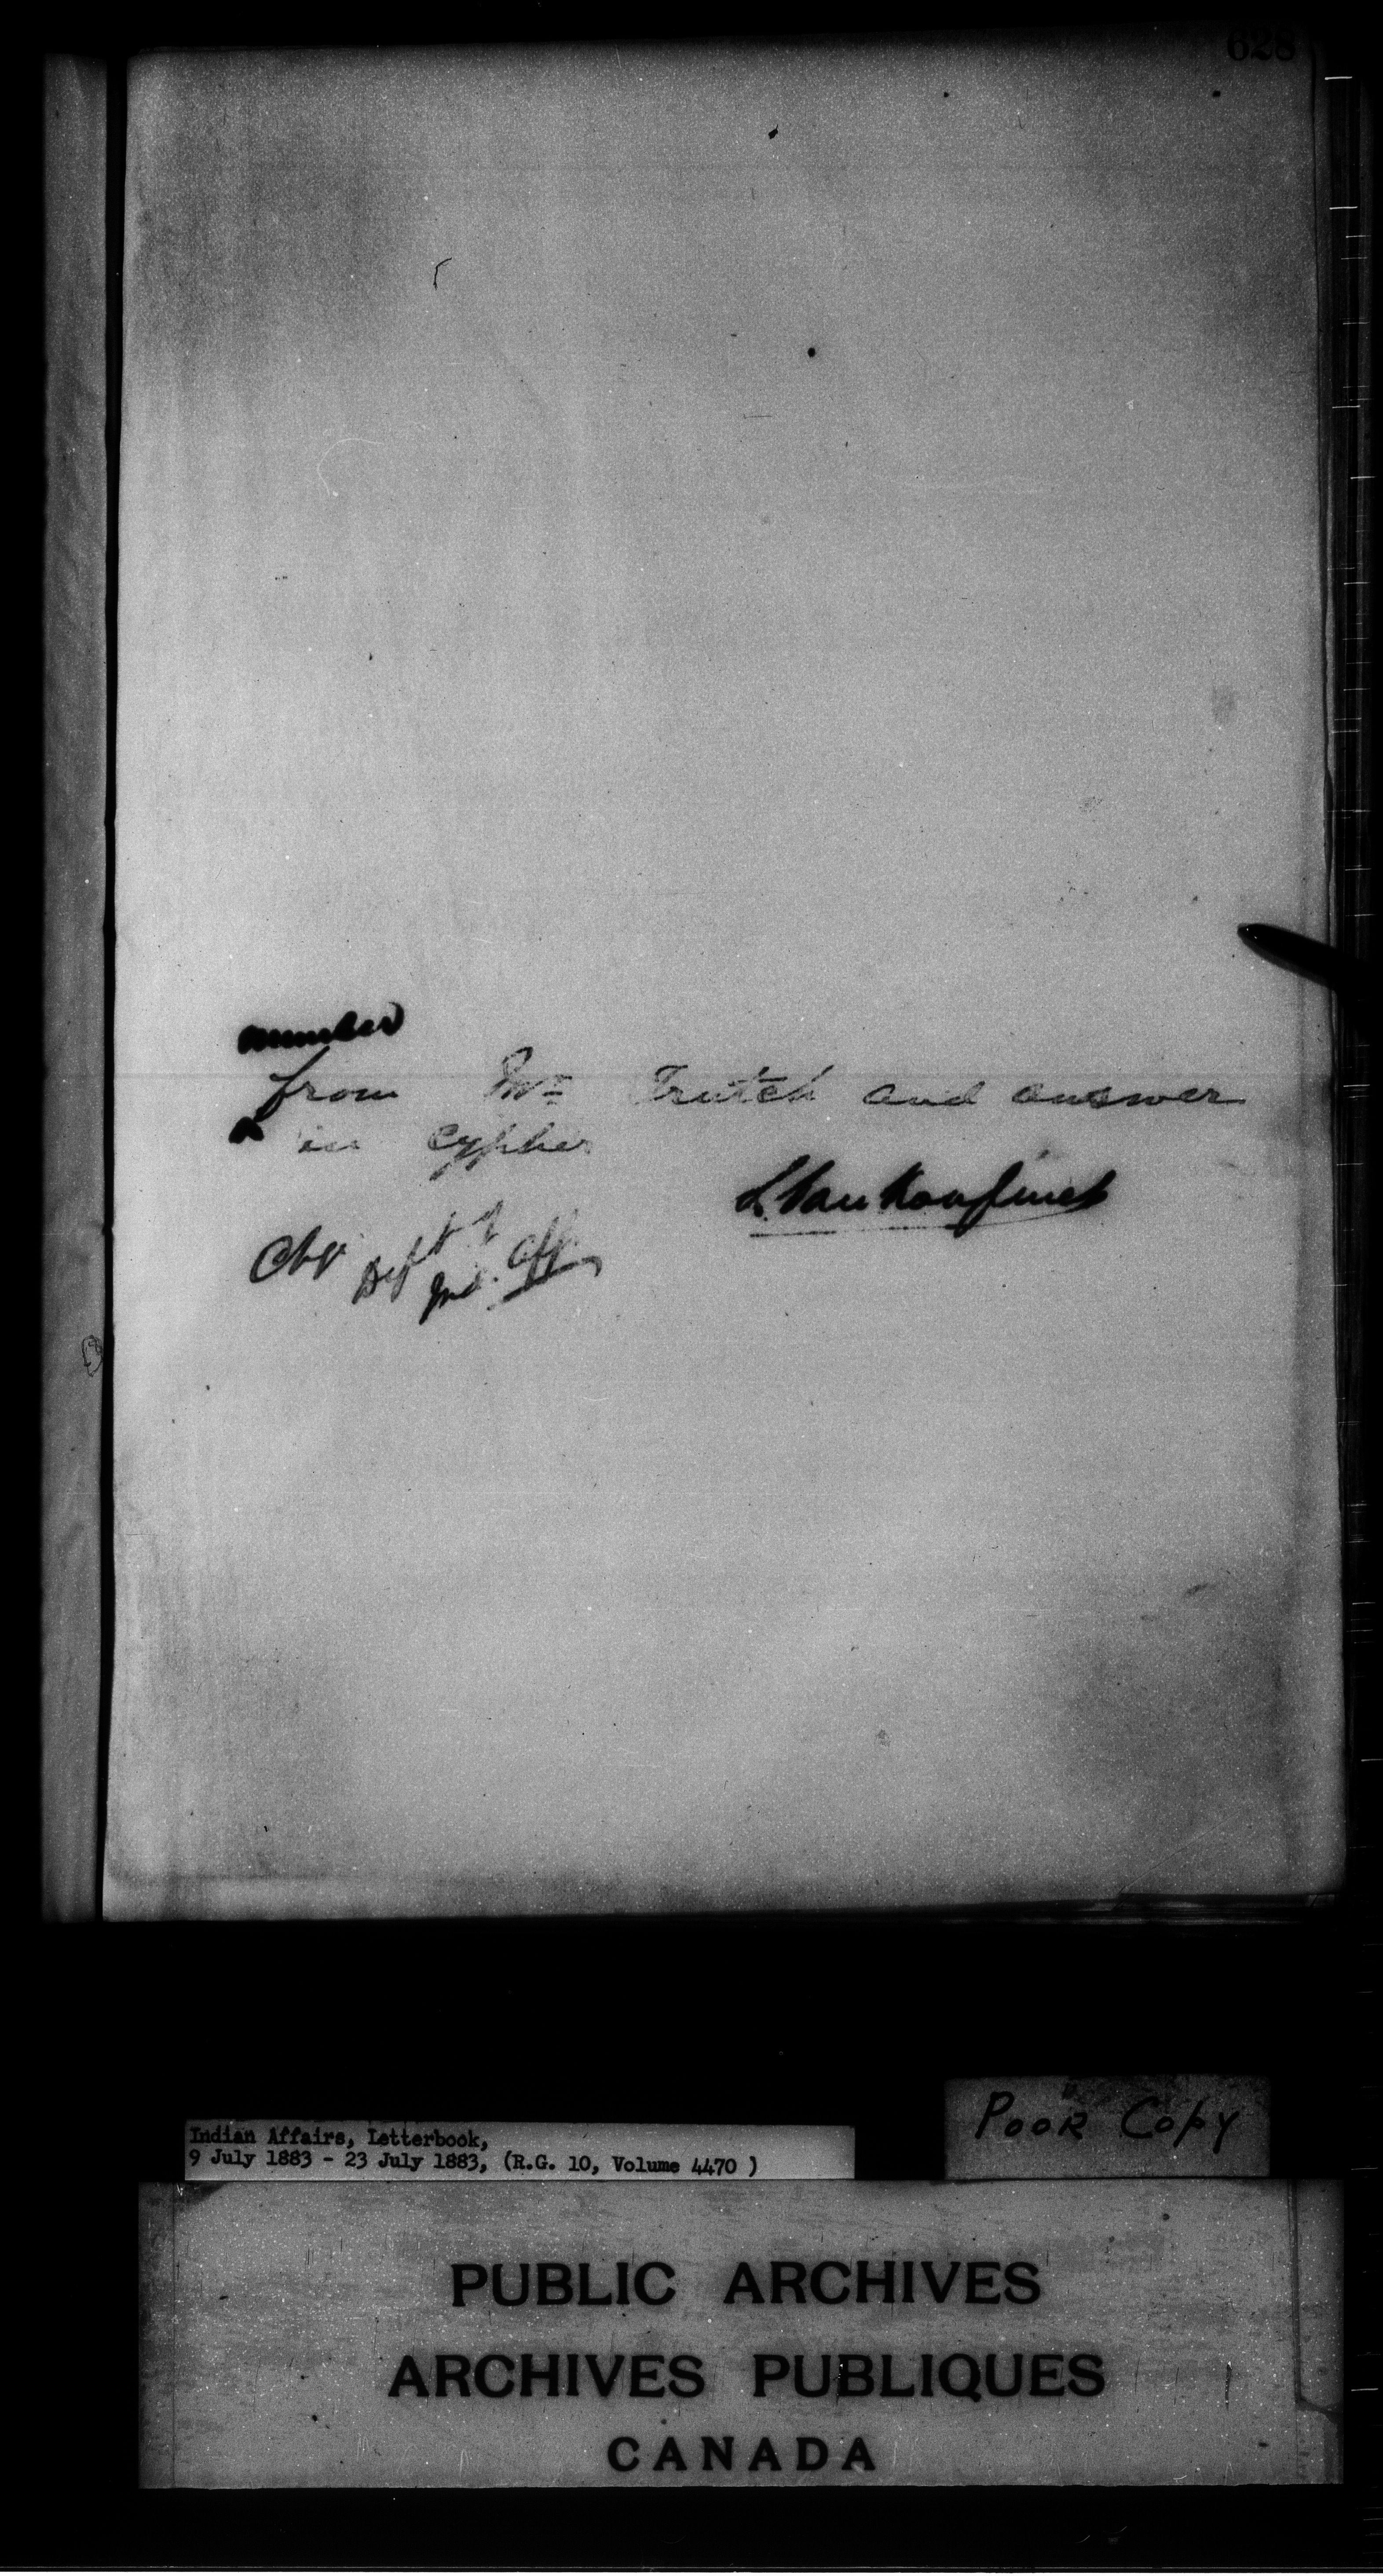 628
number
from Mr Trutch and answer
in cypher
L. VanKoughnet
Chg Dept of
Ind. Aff.
Indian Affairs, Letterbook,
9 July 1883 - 23 July 1883, (R.G. 10, Volume 4470 )
POOR COPY
PUBLIC ARCHIVES
ARCHIVES PUBLIQUES
CANADA